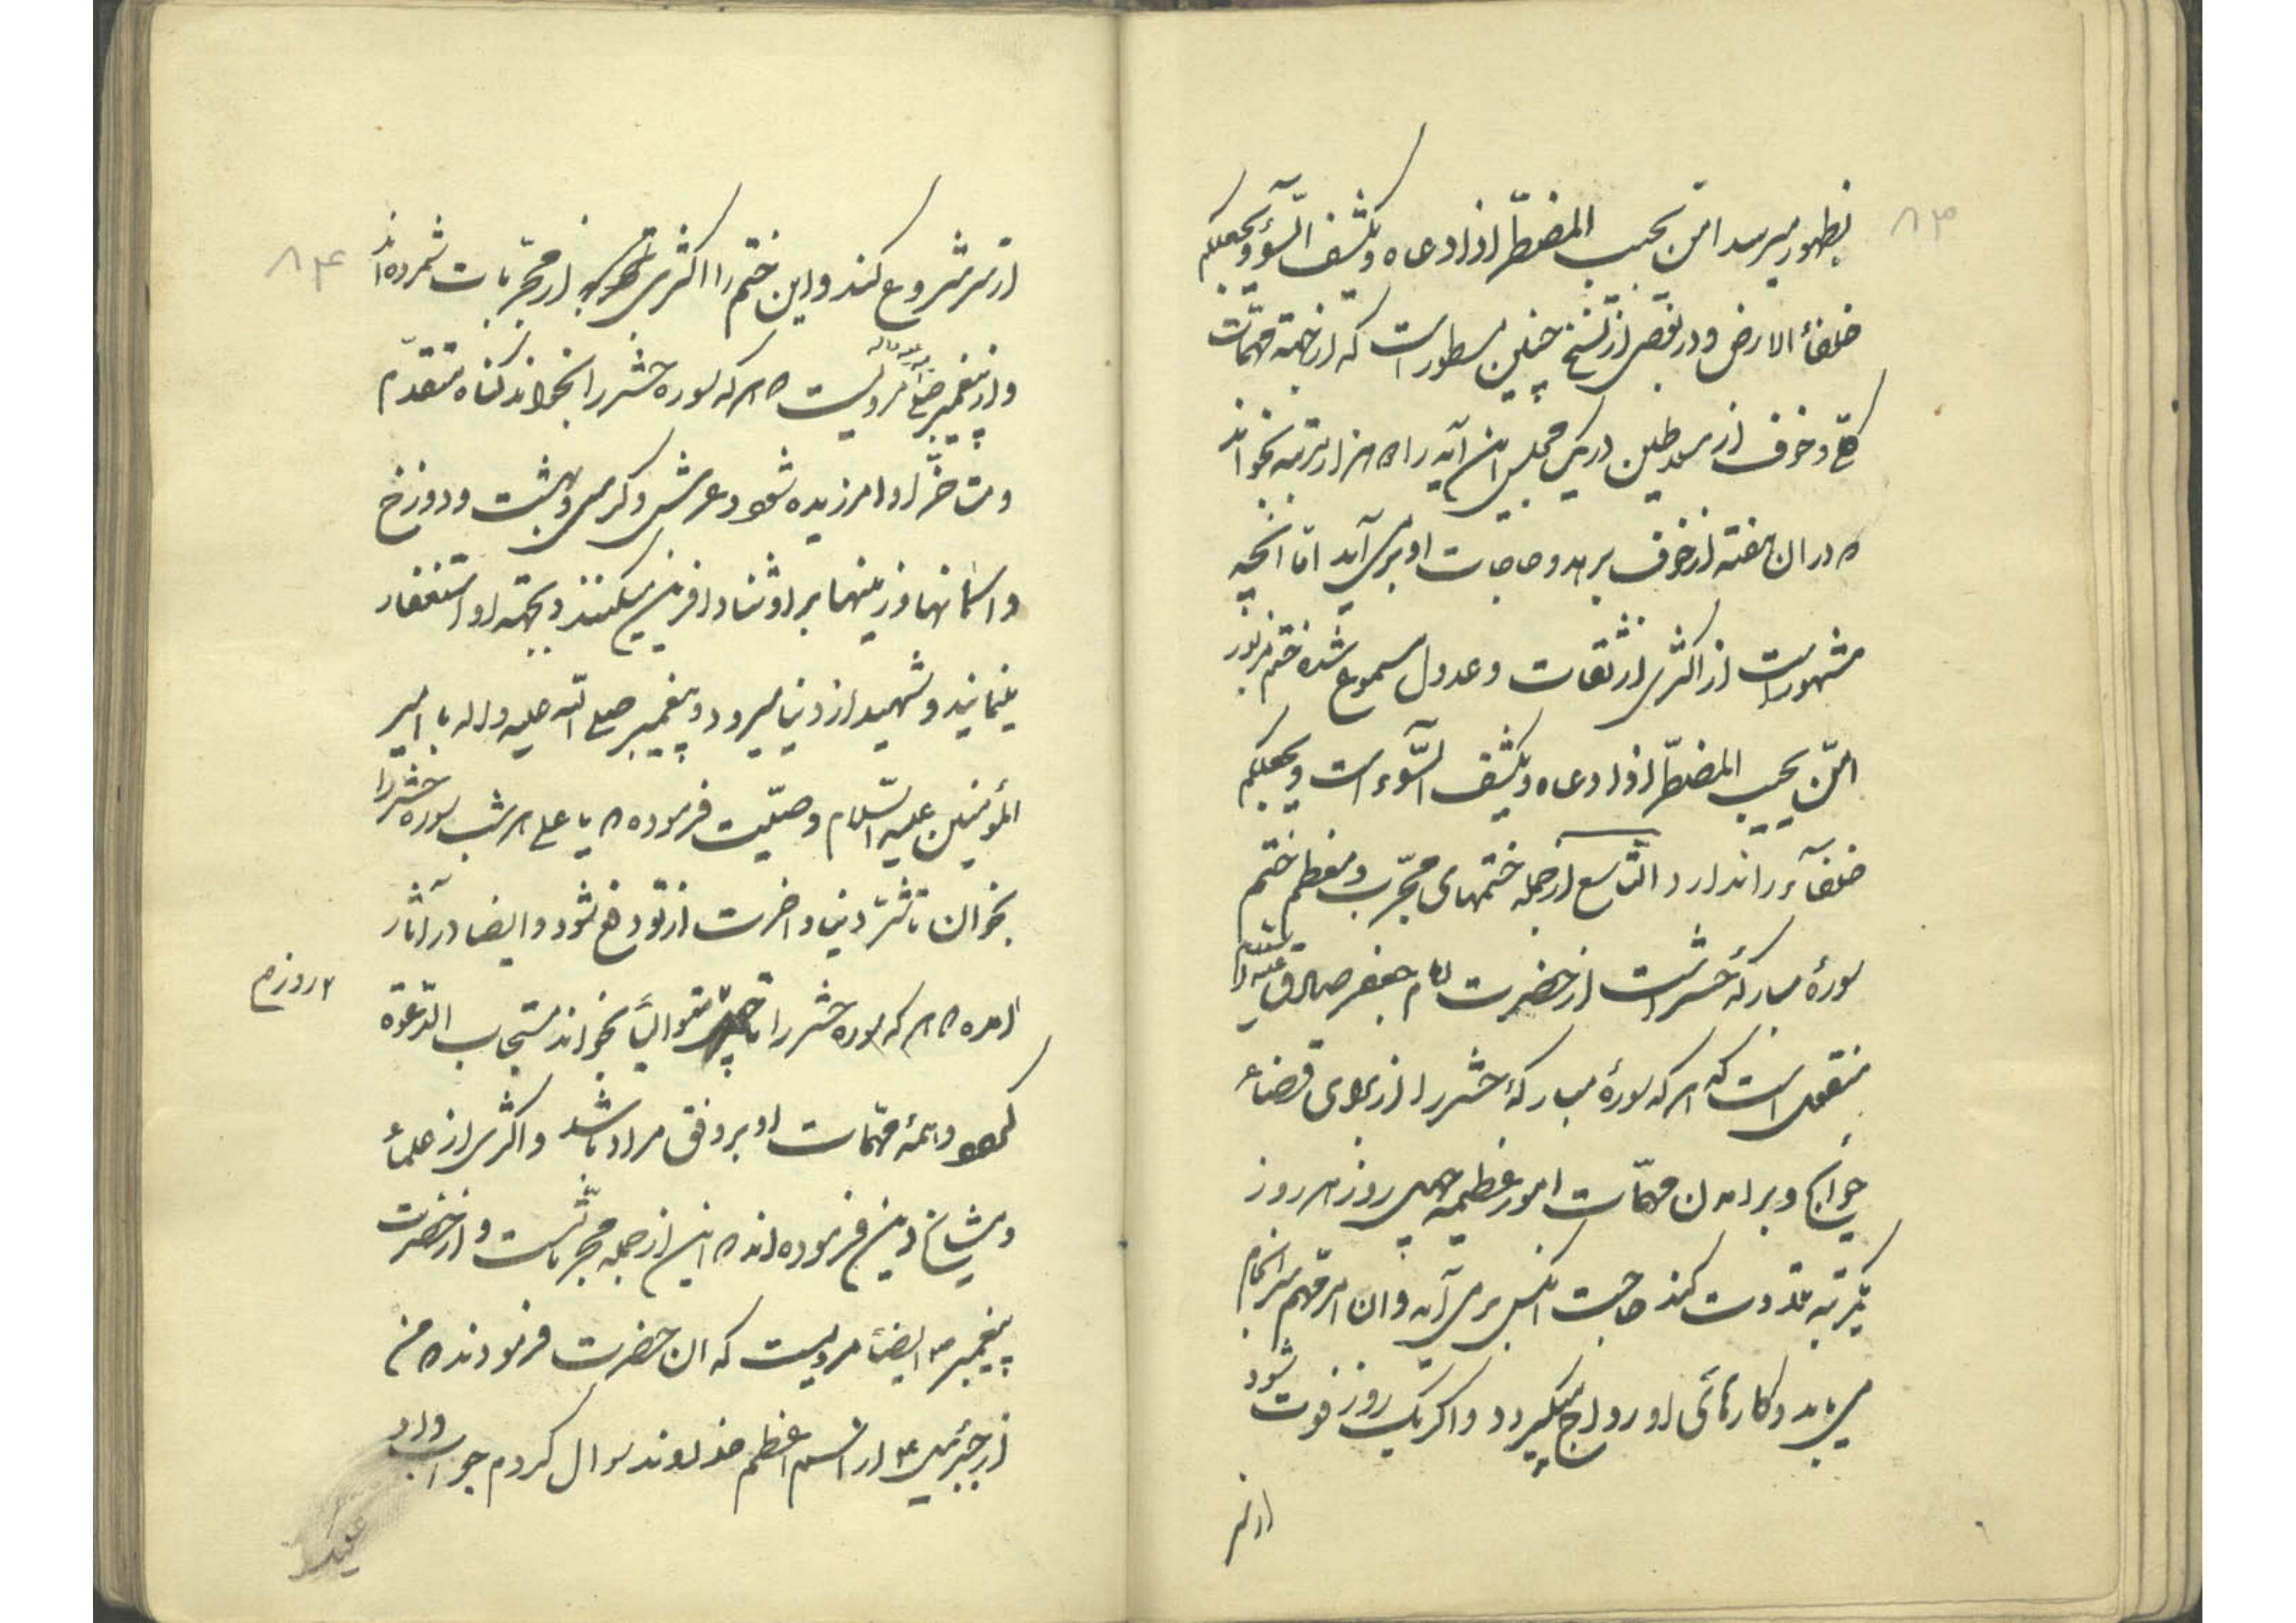 ۸۳
بظهور میرسد امّن یجیب المضطرّ اذا دعاه و یکشف السّوء و یجعلکم
خلفاء الارض و در بعضی از نسخ چنین مسطور است که از جهة مهمّات
کلّی و خوف از سلاطین در یک مجلس این آیه را هزار مرتبه بخواند
در ان هفته از خوف برهد و حاجات او برمی آید امّا انچه
مشهور است از اکثری از ثقات و عدول مسموع شده ختم مزبور
امّن یجیب المضطرّ اذا دعاه و یکشف السّوء است و یجعلکم
خلفآء را ندارد التّاسع از جمله ختمهای مجّرب و معظم ختم
سورهٔ مبارکهٔ حشر است از حضرت امام جعفر صادق علیه السلام
منقول است که هر که سورهٔ مبارکهٔ حشر را از برای قضاء
حوایج و برامدن مهمّات امور عظیمه چهل روز هر روز
یکمرتبه تلاوت کند حاجت انکس برمی آید و ان امر مهم سرانجام
می یابد و کارهائی او رواج میگیرد و اگر یک روز فوت شود
از سر
۸۴
از سر شروع کند و این ختم را اکثری از مجّربات شمرده اند
و از پیغمبر صلی الله علیه و اله مرویست که هر که سوره حشر را بخواند گناه متقدّم
و متاخّر او امرزیده شود و عرش و کرسی و بهشت و دوزخ
و اسمانها و زمینها بر او ثنا و افرین میکنند و بجهة او استغفار
مینمایند و شهید از دنیا میرود و پیغمبر صلی الله علیه و اله با امیر
المؤمنین علیه السّلام وصیّت فرموده که یا علی هر شب سوره حشر را
بخوان تا شرّ دنیا و اخرت از تو دفع شود و ایضا در آثار
امده که هر که سوره حشر را تا چهل متوالیاً بخواند مستجاب الدّعوة
روزم
گردد و همهٔ مهمّات او بر وفق مراد باشد و اکثری از علماء
و مشایخ دین فرموده اند که این از جمله مجربّاتست و از حضرت
پیغمبر ص ایضاً مرویست که ان حضرت فرمودند که من
از جبرئیل ع از اسم اعظم خداوند سوال کردم جواب داد